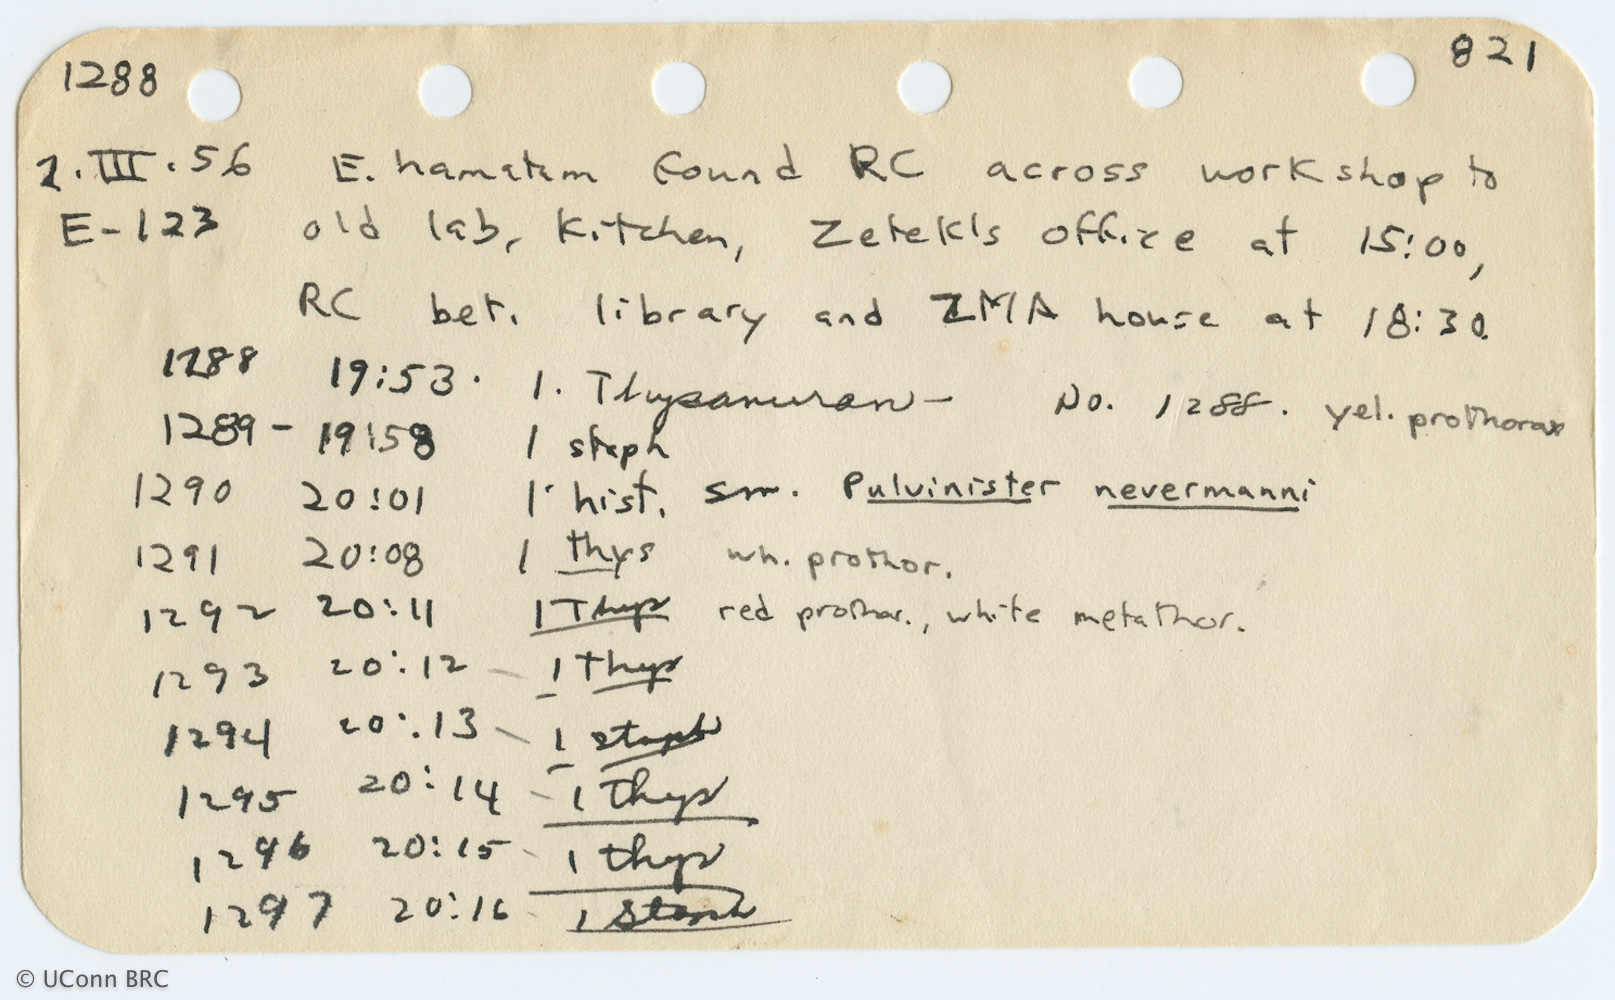 1288 821
2.III.56 E. hamatum found RC across workshop to
E-123 old lab, kitchen, Zetek's office at 15:00,
RC bet. library and ZMA house at 18:30.
1288 19:53. 1. Thysanuran - No. 1288. yel. prothorax
1289 - 19:58 1 staph
1290 20:01 1 hist. sm. Pulvinister nevermanni
1291 20:08 1 thys wh. prothor.
1292 20:11 1 Thys red prothor., white metathor.
1293 20:12 - 1 Thys
1294 20:13 - 1 staph
1295 20:14 - 1 Thys
1296 20:15 - 1 thys
1297 20:16 - 1 Staph
© UConn BRC